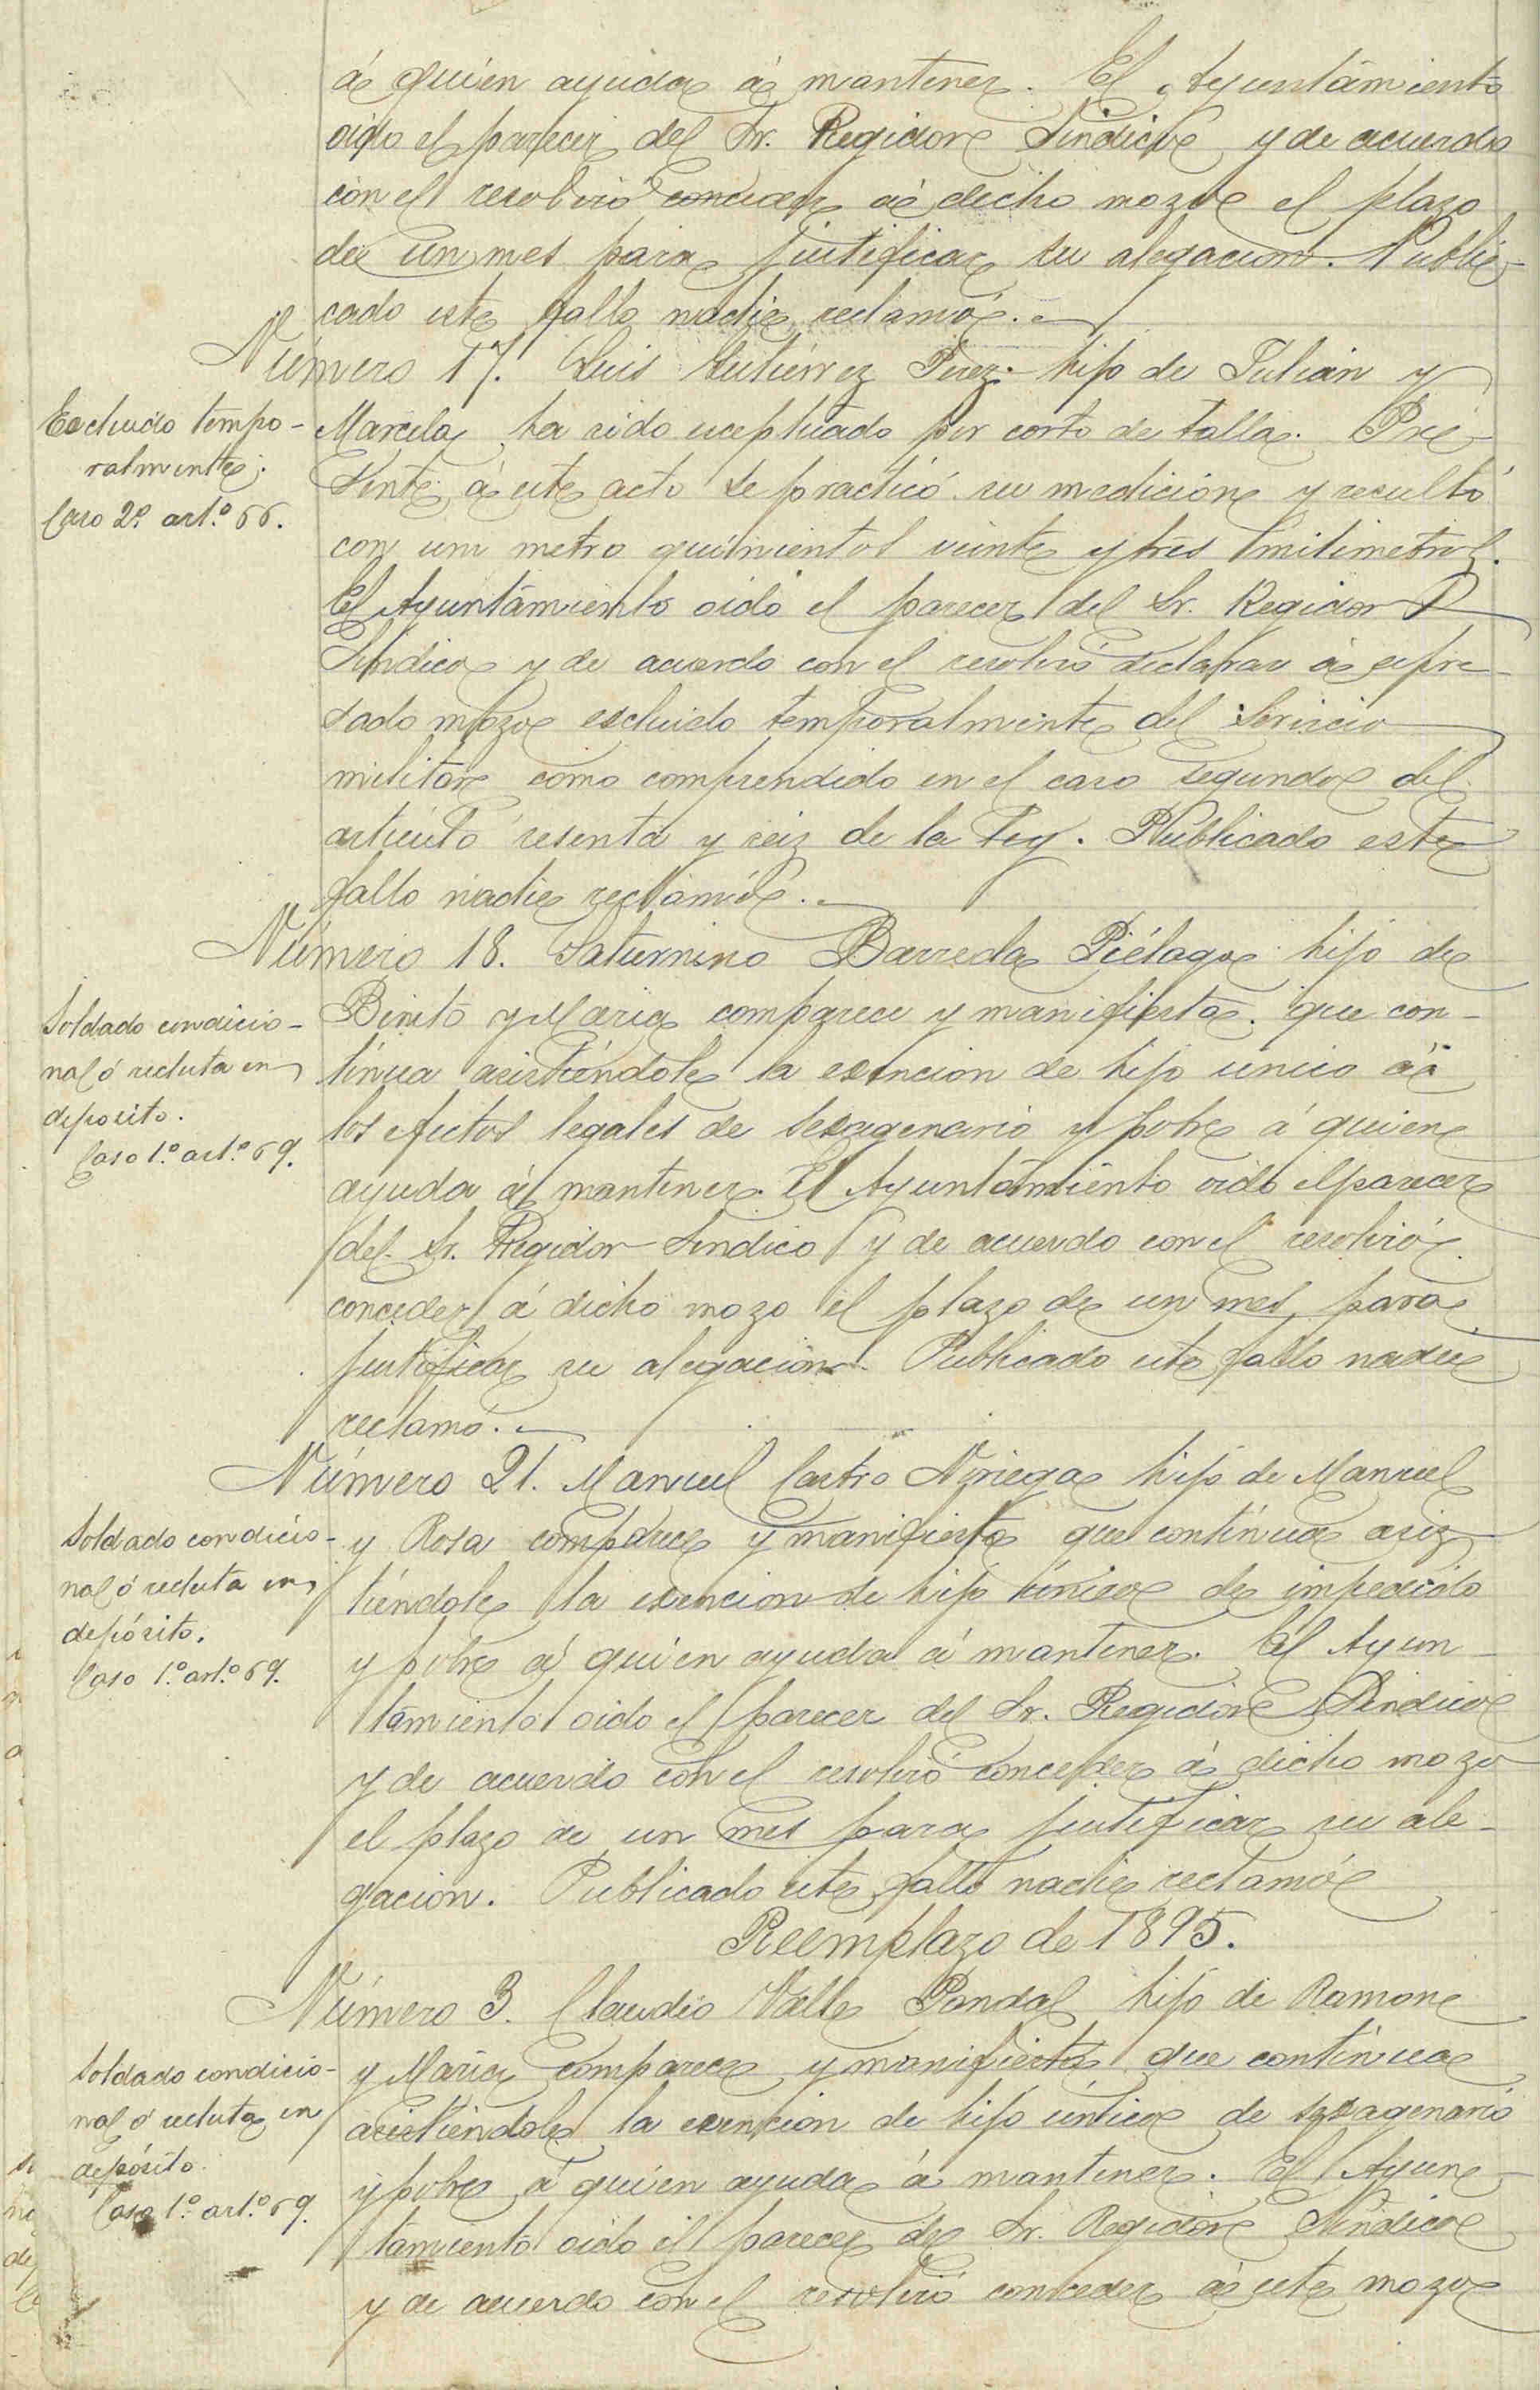 á quien ayuda á mantener. El Ayuntamiento
oido el parecer del Sr. Regidor Sindico y de acuerdo
con el resolvió conceder á dicho mozo el plazo
de un mes para justificar su alegacion. Publi-
cado este fallo nadie reclamó.
Número 17. Luis Gutierrez Perez hijo de Julian y
Excluido tempo-
ralmente.
Caso 2º art.º 66.
Marcela, ha sido exeptuado por corto de talla. Pre-
sente á este acto se practicó su medicion y resultó
con un metro quinientos veinte y tres milimetros.
El Ayuntamiento oido el parecer del Sr. Regidor
Sindico y de acuerdo con el resolvió declarar á expre-
sado mozo escluido temporalmente del Servicio
militar como comprendido en el caso segundo del
artículo sesenta y seiz de la Ley. Publicado este
fallo nadie reclamó.
Número 18. Saturnino Barreda Piélago hijo de
Soldado condicio-
nal ó recluta en
deposito.
Caso 1.º art.º 69.
Benito y Maria comparece y manifiesta que con-
tínua asistiéndole la esencion de hijo unico á
los efectos legales de sexagenario y pobre á quien
ayuda á mantener. El Ayuntamiento oido el parecer
del Sr. Regidor Sindico y de acuerdo con el resolvió
conceder á dicho mozo el plazo de un mes para
justificar su alegacion. Publicado este fallo nadie
reclamó.
Número 21. Manuel Castro Noriega hijo de Manuel
Soldado condicio-
nal ó recluta en
depósito.
Caso 1.º art.º 69.
y Rosa comparece y manifiesta que contínua asiz
tiéndole la exencion de hijo único de impedido
y pobre á quien ayuda á mantener. El Ayun-
tamiento oido el parecer del Sr. Regidor Sindico
y de acuerdo con el resolvió conceder á dicho mozo
el plazo de un mes para justificar su ale-
gacion. Publicado este fallo nadie reclamó
Reemplazo de 1895.
Número 3. Claudio Valle Pandal hijo de Ramon
Soldado condicio-
nal ó recluta en
depósito.
Caso 1.º art.º 69.
y Maria comparece y manifiesta que contínua
asistiéndole la exencion de hijo único de sexagenario
y pobre á quien ayuda á mantener. El Ayun-
tamiento oido el parecer de Sr. Regidor Sindico
y de acuerdo con el resolvió conceder á este mozo